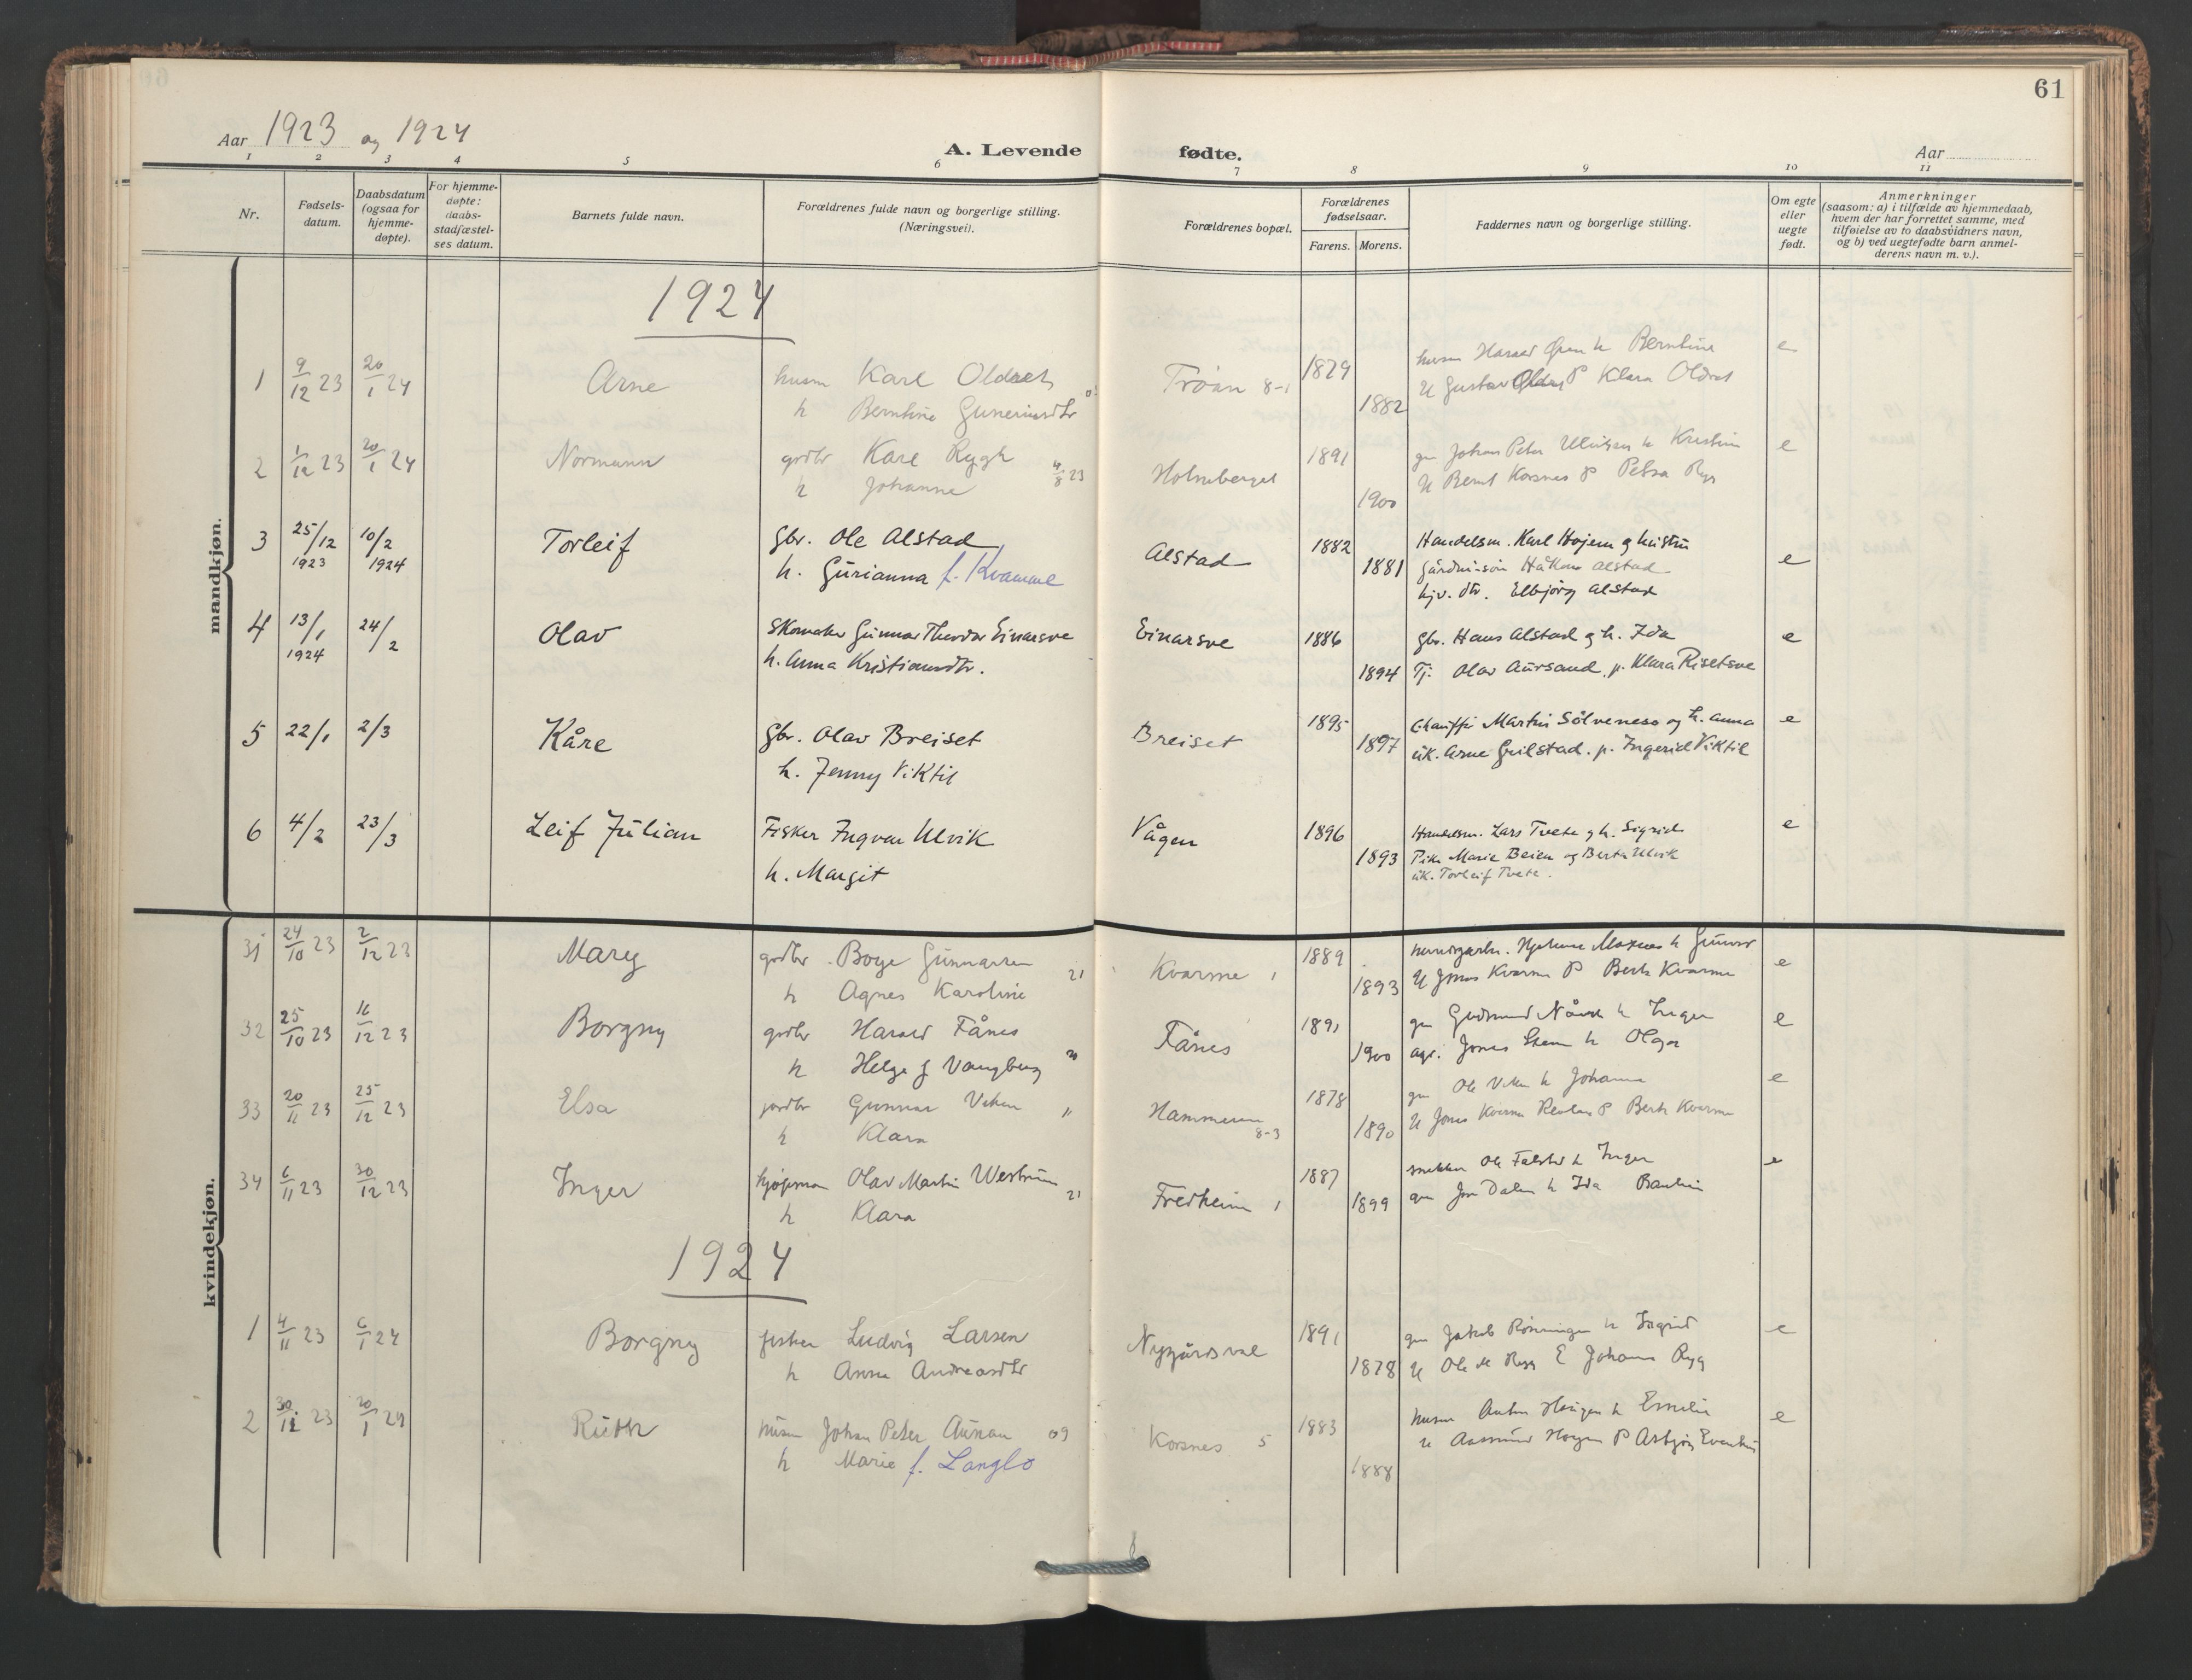 61
Aar 1923 og 1924
A. Levende fødte.
Aar
1 2 3 4 5 6 7 8 9 10 11
Nr.
Fødsels-
datum.
Daabsdatum
(ogsaa for
hjemme-
døpte).
For hjemme-
døpte:
daabs-
stadfæstel-
ses datum.
Barnets fulde navn.
Forældrenes fulde navn og borgerlige stilling.
(Næringsvei).
Forældrenes bopæl.
Forældrenes
fødselsaar.
Farens. Morens.
Faddernes navn og borgerlige stilling.
Om egte
eller
uegte
født.
Anmerkninger
(saasom: a) i tilfælde av hjemmedaab,
hvem der har forrettet samme, med
tilføielse av to daabsvidners navn,
og b) ved uegtefødte barn anmel-
derens navn m. v.).
mandkjøn.
1924
1 9/12 23 20/1 24 Arne husm Karl Oldret Trøan 8-1 1879 husm Harald h Berntine e
h Berntine Guneriusdtr 1882 U Gustav P Klara Oldret
2 1/12 23 20/1 24 Normann grdbr Karl Rygh Holmberget 1891 gm Johan Peter h Kristine e
h Johanne 4/8 23 1900 U Bernt Korsnes P Petra Ryg
3 25/12 1923 10/2 1924 Torleif Gbr. Ole Alstad Alstad 1882 Handelsm. Karl Hojem og hustru e
h. Gurianna f. Kvamme 1881 Gårdm.søn Håkon Alstad
hjv. dtr. Elbjörg Alstad
4 13/1 1924 24/2 Olav Skomaker Gunnar Theodor Einarsve Einarsve 1886 Gbr. Hans Alstad og h. Ida e
h. Anna Kristiansdtr. 1894 Tj. Olav Aursand, p. Klara Risetsve
5 22/1 2/3 Kåre Gbr. Olav Breiset Breiset 1895 Chauffør Martin Sølvenes og h. Anna e
h. Jenny Viktil 1897 uk. Arne Geilstad. p. Ingerid Viktil
6 4/2 23/3 Leif Julian Fisker Ingvar Ulvik Vågen 1896 Handelsm. Lars Tvete og h. Sigrid e
h. Margit 1893 Pike Marie Beien og Berta Ulvik
uk. Torleif Tvete.
kvindekjøn.
31 24/10 23 2/12 23 Mary grdbr. Boye Gunnarsen 21 Kvarme 1 1889 Hjelmar Moxnes h Gunvor e
h Agnes Karoline 1893 U Jonas Kvarme P Berta Kvarme
32 25/10 23 16/12 23 Borgny grdbr Harald Fånes Fånes 1891 gm Gudmund h Inger e
h Helga f Vangberg 20 1900 agr. Jonas h Olga
33 20/11 23 25/12 23 Elsa jordbr Gunnar Viken 11 Hammeren 8-3 1878 gm Ole Viken h Johanna e
h Klara 1890 U Jonas Kvarme P Berta Kvarme
34 6/11 23 30/12 23 Inger kjøpman Olav Martin Westrum 21 Fredheim 1 1887 snekker Ole Falstad h Inger e
h Klara 1899 gm Jon Dalen h Ida
1924
1 4/11 23 6/1 24 Borgny fisker Ludvig Larsen Nygårdsval 1891 gm Jakob Rönningen h Ingrid e
h Anna Andreasdtr 1878 U Ole M Ryg E Johanna Ryg
2 30/11 23 20/1 24 Ruth husm Johan Peter Aunan 09 Korsnes 5 1883 husm Anton Haugen h Emilie e
h Marie f. Langlo 1888 U Aasmund Haugen P Asbjörg